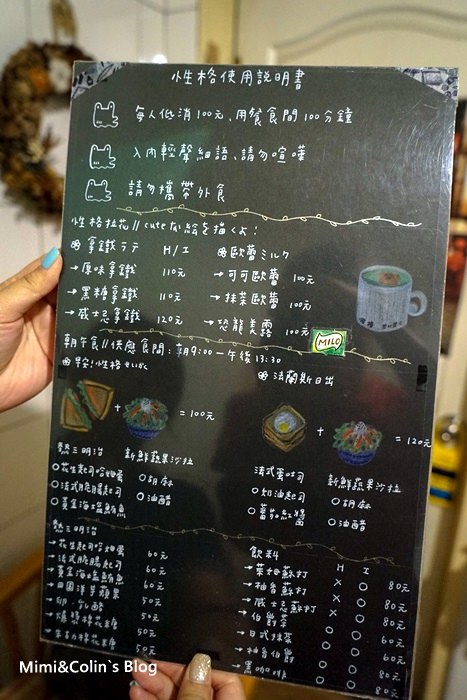 性格使用說明書
每人低消100元、用餐時間100分鐘
入內輕聲細語、請勿喧嘩
請勿攜帶外食
性格拉花//cuteな絵を描くよ!
拿鐵ラテ H/I
→原味拿鐵 110元
→黑糖拿鐵 110元
→威士忌拿鐵 120元
歐蕾ミルク
→可可歐蕾 100元
→抹茶歐蕾 100元
→恐龍美露 100元
MILO
朝午食//供應時間:朝9:00-午後13:30
早安!性格せいかく
+ =100元
熱三明治
新鮮蔬果沙拉
花生起司哈姆蛋
法式脆腸起司
黃金海鹽鮪魚
胡麻
油醋
法蘭斯日出
+ =120元
法式蛋吐司
新鮮蔬果沙拉
奶油起司
蕃茄紅醬
胡麻
油醋
熱三明治
→花生起司哈姆蛋 60元
→法式脆腸起司 60元
→黃金海鹽鮪魚 60元
→田園洋芋蘋果 50元
50元
棉花糖 50元
棉花糖 50元
飲料 H I
→萊姆蘇打 X O 80元
→柚香蘇打 X O 80元
→威士忌蘇打 X O 80元
→伯爵茶 O O 80元
→日式抹茶 O O 80元
→柚香伯爵 O O 80元
→黑咖啡 O O 80元
Mimi&Colin`s Blog